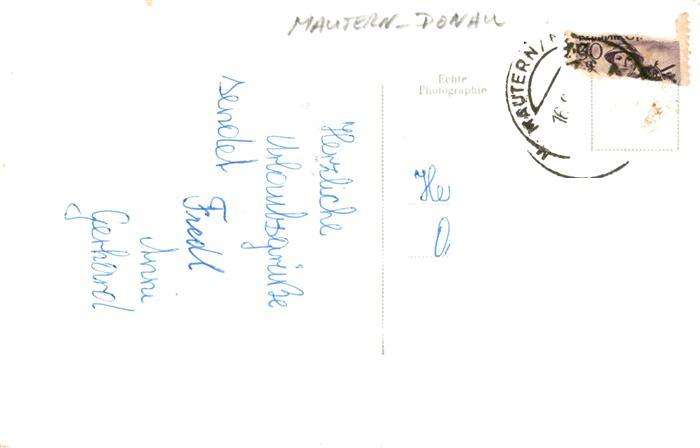 MAUTERN - DONAU
Echte
Photographie
MAUTERN
30
Herzliche
Urlaubsgrüße
sendet
Fredl
Anni
Gerhard
He